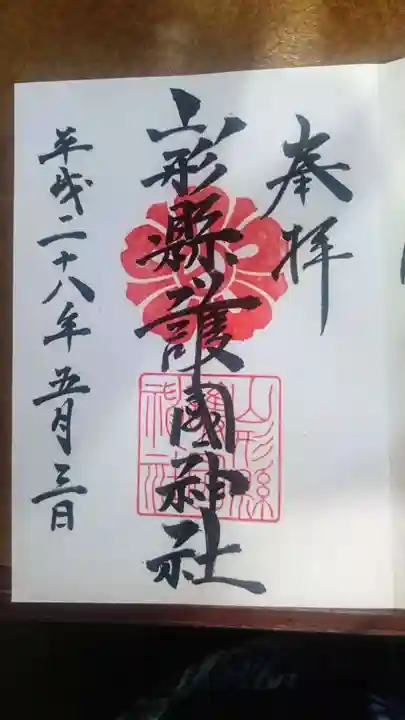 奉拝
山形縣護國神社
山形縣
護國神社
平成二十八年五月三日